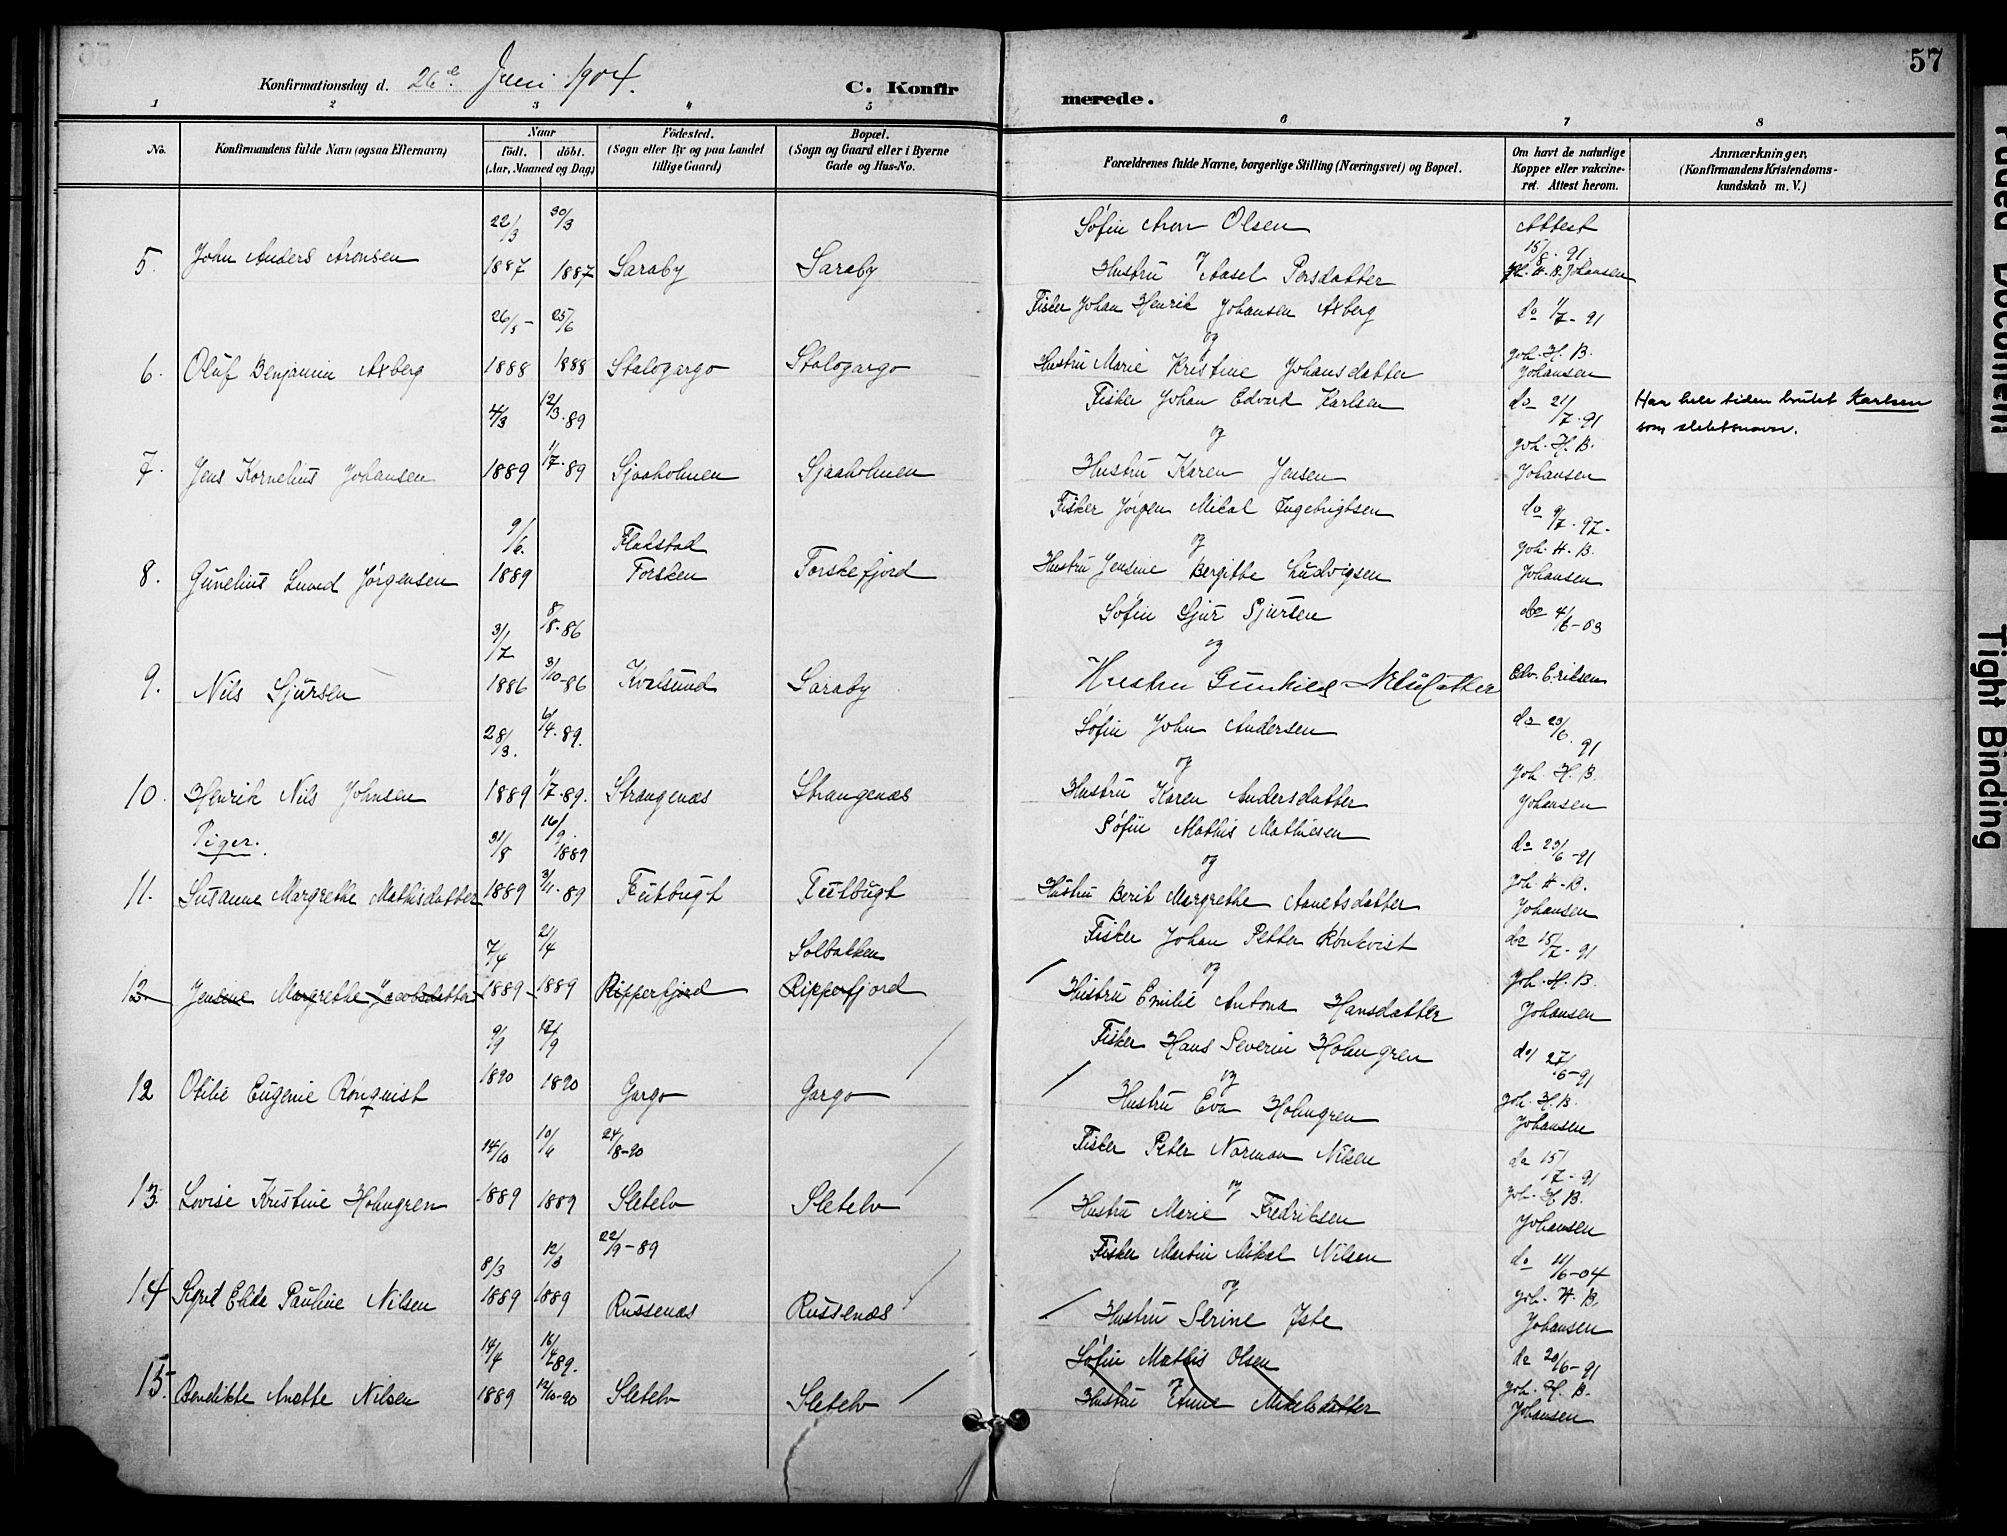 57
Konfirmationsdag d. 26de Juni 1904.
C. Konfir
merede.
1 2 3 4 5
6 7 8
No.
Konfirmandens fulde Navn (ogsaa Efternavn)
Naar
födt. döbt.
(Aar, Maaned og Dag)
Födested.
(Sogn eller By og paa Landet
tillige Gaard)
Bopæl.
(Sogn og Gaard eller i Byerne
Gade og Hus-No.
Forældrenes fulde Navne, borgerlige Stilling (Næringsvei) og Bopæl.
Om havt de naturlige
Kopper eller vakcine-
ret. Attest herom.
Anmærkninger,
(Konfirmandens Kristendoms-
kundskab m. V.)
22/3 30/3
5. John Anders Aronsen 1887 1887 Saraby Saraby
Søfin Aron Olsen
og
Hustru Aasel Persdatter
Attest
15/8. 91
Joh. H. B. Johansen
26/5 25/6
6. Oluf Benjamin Axberg 1888 1888 Stalogargo Stalogargo
Fisker Johan Henrik Johansen Axberg
og
Hustru Marie Kristine Johansdatter
do 1/7 - 91
Joh. H. B.
Johansen
4/3 12/3. 89
7. Jens Kornelius Johansen 1889 1/7. 89 Sjaaholmen Sjaaholmen
Fisker Johan Edvard Karlsen
og
Hustru Karen Jensen
do 21/7. 91
Joh. H. B.
Johansen
Har hele tiden brukt Karlsen
som slektsnavn.
9/6. Flakstad
8. Gunelius Lund Jørgensen 1889 Torsken Torskefjord
Fisker Jørgen Mikal Ingebrigtsen
og
Hustru Jensine Bergitte Ludvigsen
do 9/7. 97.
Joh. H. B.
Johansen
31/7 8/8. 86
9. Nils Sjursen 1886 3/10-86 Kvalsund Saraby
Søfin Sjur Sjursen
og
Hustru Gunhild Nilsdatter
do 4/6-03
Edv. Eriksen
28/3. 6/4. 89.
10. Henrik Nils Johnsen 1889 1/7. 89. Strangenæs Strangenæs
Søfin John Andersen
og
Hustru Karen Andersdatter
do 23/6. 91
Joh. H. B.
Johansen
Piger.
31/8 16/9. 1889
11. Susanne Margrethe Mathisdatter 1889 3/11. 89
Søfin Mathis Mathiesen
og
Hustru Berit Margrethe
do 23/6-91
Joh. H. B.
Johansen
7/4 21/4 Solbakken
12. Jensine Margrethe Jacobsdatter 1889 1889 Ripperfjord Ripperfjord
Fisker Johan Petter Rønkvist
og
Hustru Emilie Antona Hansdatter
do 15/7. 91
Joh. H. B.
Johansen
9/9 17/9
12 Otilie Eugenie Rønquist 1890 1890 Gargo Gargo
Fisker Hans Severin Holmgren
og
Hustru Eva Holmgren
do 27/6-91
Joh. H. B.
Johansen
14/10 24/8-90
13. Lovise Kristine Holmgren 1889 1889 Sletelv Sletelv
Fisker Peter Norman Nilsen
og
Hustru Marie Fredriksen
do 15/7-91
Joh. H. B.
Johansen
8/3 12/3 22/9-89
14 Sigrid Elida Pauline Nilsen 1889 1889 Russenæs Russenæs
Fisker Martin Mikal Nilsen
og
Hustru Serine
do 11/6-04
Joh. H. B.
Johansen
14/4 16/4 89.
15. Bendikte Anette Nilsen 1889 12/10-90 Sletelv Sletelv
Søfin Mathis Olsen
og
Hustru Mikelsdatter
do 20/6-91
Joh. H. B.
Johansen
Faded Document
Tight Binding